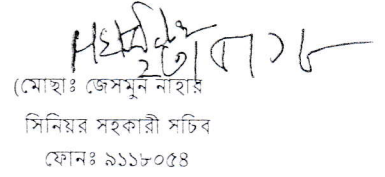 (মোছাঃ জেসমুন নাহার
সিনিয়র সহকারী সচিব
ফোনঃ ৯১১৮০৫৪